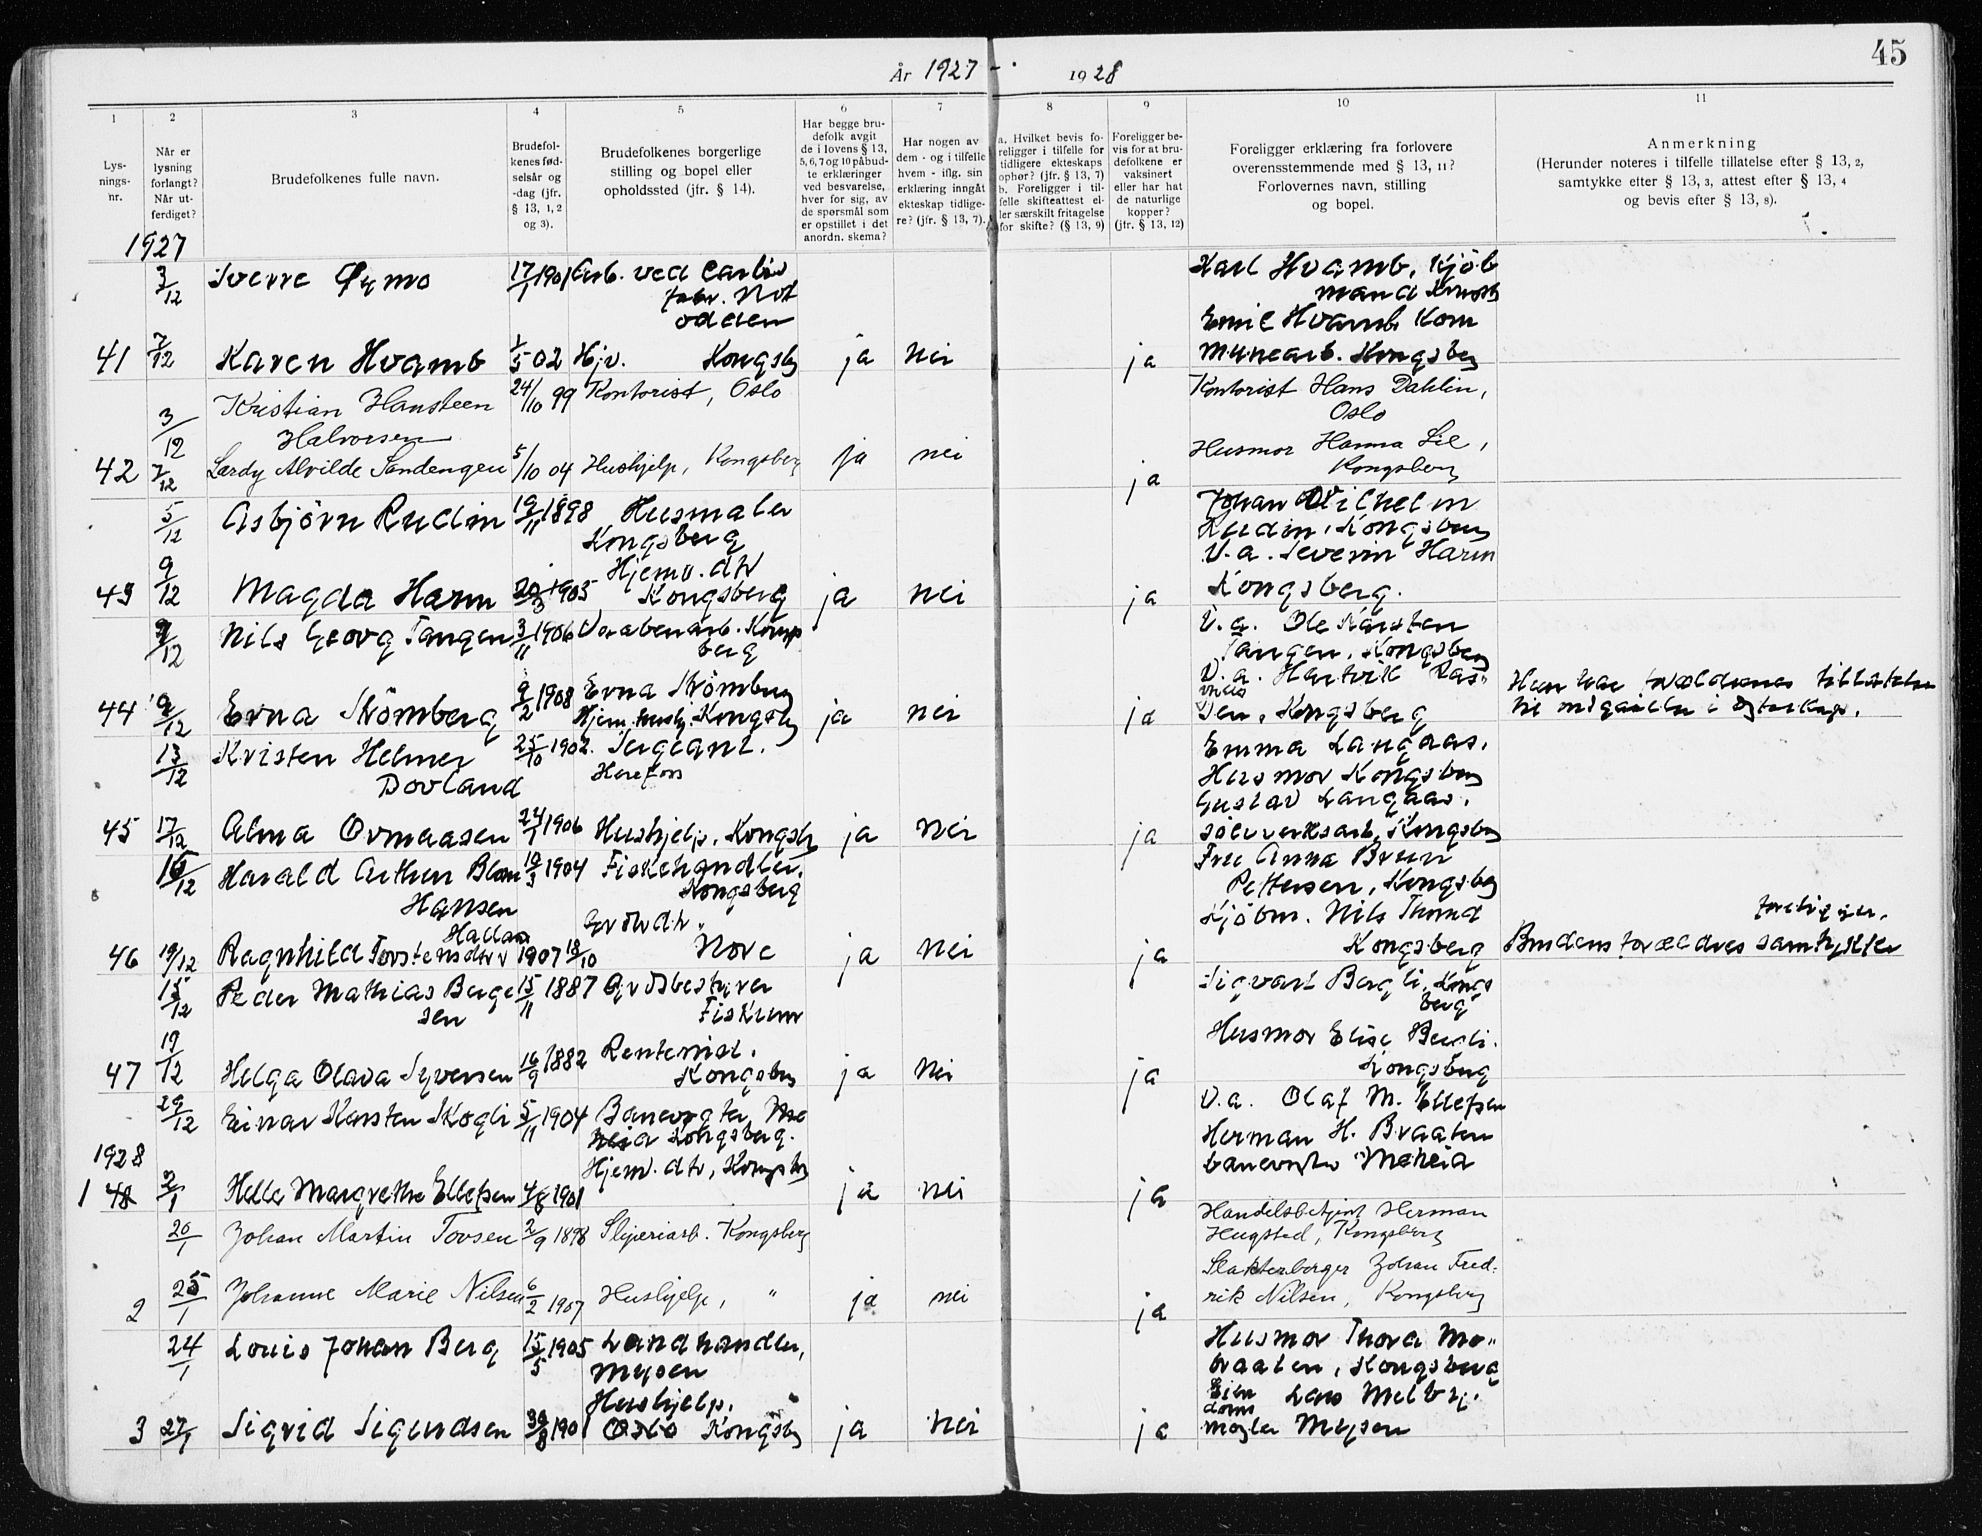 45
År 1927 - 1928
1 2 3 4 5 6 7 8 9 10 11
Lys-
nings-
nr.
Når er
lysning
forlangt?
Når ut-
ferdiget?
Brudefolkenes fulle navn.
Brudefol-
kenes fød-
selsår og
-dag (jfr.
§ 13, 1, 2
og 3).
Brudefolkenes borgerlige
stilling og bopel eller
opholdssted (jfr. § 14).
Har begge bru-
defolk avgit
de i lovens § 13,
5, 6, 7 og 10 påbud-
te erklæringer
ved besvarelse,
hver for sig, av
de spørsmål som
er opstillet i det
anordn. skema?
Har nogen av
dem - og i tilfelle
hvem - iflg. sin
erklæring inngått
ekteskap tidlige-
re? (jfr. § 13, 7).
a. Hvilket bevis fo-
religger i tilfelle for
tidligere ekteskaps
ophør? (jfr. § 13, 7)
b. Foreligger i til-
felle skifteattest el-
ler særskilt fritagelse
for skifte? (§ 13, 9)
Foreligger be-
vis for at bru-
defolkene er
vaksinert
eller har hat
de naturlige
kopper?
(jfr. § 13, 12)
Foreligger erklæring fra forlovere
overensstemmende med § 13, 11?
Forlovernes navn, stilling
og bopel.
Anmerkning
(Herunder noteres i tilfelle tillatelse efter § 13, 2,
samtykke efter § 13, 3, attest efter § 13, 4
og bevis efter § 13, 8).
1927
3/12 Sverre Øymo 17/1 1901 Arb. ved Carbid
fabr. Not
odden
Karl Hvamb, Kjöb
mand Kongsb
Emil Hvamb Kom
41 7/12 Karen Hvamb 1/5 02 Hjv. Kongsbg ja nei ja munearb. Kongsberg
3/12 Kristian Hansteen 24/10 99 Kontorist, Oslo Kontorist Hans Dahlin,
Halvorsen Oslo
Husmor Hanna Lie,
42 7/12 Lærdy Alvilde Sandengen 5/10 04 Hushjelp, Kongsberg ja nei ja Kongsberg
5/12 Asbjörn Rudin 19/11 1898 Husmaler Johan Wilhelm
Kongsberg Rudin, Kongsberg
Hjemv. dtr V.a. Severin Harm
43 9/12 Magda Harm 20/3 1905 Kongsberg ja nei ja Kongsberg.
9/12 Nils Georg Tangen 3/11 1906 Vaabenarb. Kongs
berg
V.a. Ole Karsten
Tangen, Kongsberg
44 9/12 Erna Strömberg 9/2 1908 Erna Strömberg V.a. Hartvik Ras-
Hjem. hushj. Kongsbg ja nei ja sen, Kongsberg
Hun har forældrenes tillatelse
til indgaaelse i egteskap.
13/12 Kristen Helmer 25/10 1902. Sergeant. Emma Langaas,
Dovland Herefoss Husmor Kongsberg
Gustav Langaas,
45 17/12 Alma Ormaasen 24/1 1906 Hushjelp, Kongsbg ja nei ja sölvverksarb, Kongsberg
16/12 Harald Arthur Blom 19/3 1904 Fiskehandler, Fru Anna Brun
Hansen Kongsberg Pettersen, Kongsbg
Hallan Grdbr dtr. Kjöbm. Nils Thond
46 19/12 Ragnhild Torstensdtr 1907 18/10 Nore ja nei ja Kongsberg
Brudens forældres samtykke
foreligger.
15/12 Peder Mathias Berge 15/11 1887 Grdsbestyrer Sigvart Bergli, Kongs
sen Fiskum berg
Rentenist. Husmor Elise Bergli.
47 19/12 Helga Olava Syversen 16/9 1882 Kongsberg ja nei ja Kongsberg
29/12 Einar Karsten Skogli 5/11 1904 Banevogter, Me
heia Kongsberg.
V.a. Olaf M. Ellefsen
Herman H. Braaten
1928
Hjemv. dtr, Kongsbg banevogter Meheia
1 48 2/1 Helle Margrethe Ellefsen 4/8 1901 ja nei ja
20/1 Johan Martin Tovsen 2/9 1898 Sliperiarb. Kongsberg Handelsbetjent Herman
Hugsted, Kongsberg
Slakterborger Johan Fred-
2 25/1 Johanne Marie Nilsen 6/2 1907 Hushjelp, " ja nei ja rik Nilsen, Kongsberg
24/1 Louis Johan Berg 15/5 1905 Landhandler, Husmor Thora Mo-
Mysen braaten, Kongsberg
Hushjelp. Eien Lars Melby.
doms
3 27/1 Sigrid Sigurdsen 30/8 1901 Oslo Kongsbg ja nei ja megler Mysen